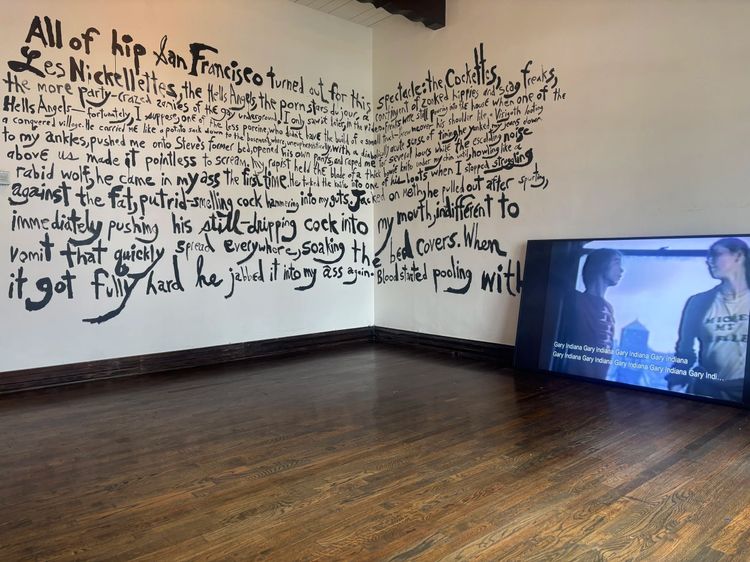 All of hip San Francisco turned out for this spectacle: the Cockettes,
Les Nickellettes, the Hells Angels, the porn stars du jour, a contingent of zonked hippies and scag freaks,
the more party-crazed zanies of the gay underground. I only saw it briefly, were still the house when one of the
Hells Angels—fortunately, I suppose, one of the less porcine, who didn't have the build of a small me over his shoulder like a Visigoth looting
a conquered village. He carried me like a potato sack down to the basement, where, unceremoniously, with a acute sense of timing, he yanked my jeans down
to my ankles, pushed me onto Steve's former bed, opened his own pants, and raped me for several hours while the escalating noise
above us made it pointless to scream. My rapist held the blade of a thick knife under my chin until, howling like a
rabid wolf, he came in my ass the first time. He tucked the knife into one of his boots when I stopped struggling
against the fat, putrid-smelling cock hammering into my guts. Jacked on meth, he pulled out after spurting,
immediately pushing his still-dripping cock into my mouth, indifferent to
vomit that quickly spread everywhere, soaking the bed covers. When
it got fully hard he jabbed it into my ass again. Blood started pooling with
Gary Indiana Gary Indiana Gary Indiana Gary Indiana
Gary Indiana Gary Indiana Gary Indiana Gary Indiana Gary Indi...